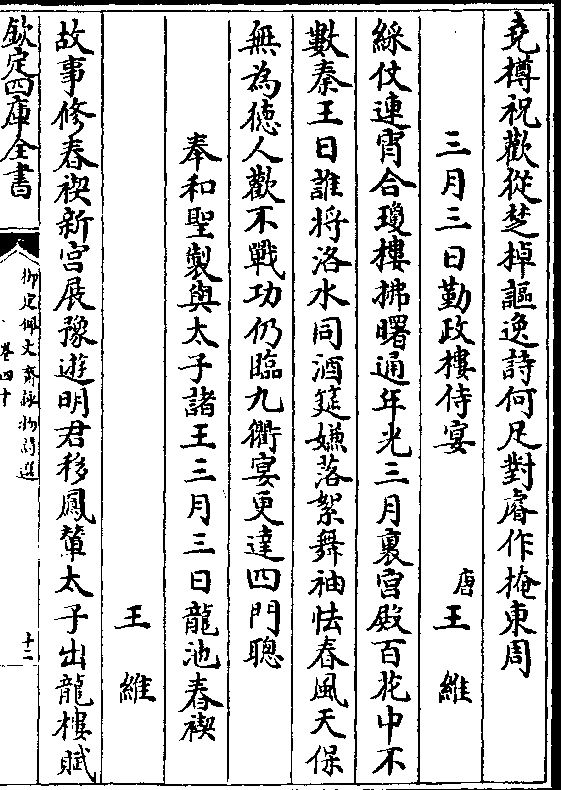 堯樽祝歡從楚棹謳逸詩何足對睿作掩東周
三月三日勤政樓侍宴 唐王維
綵仗連宵合瓊樓拂曙通年光三月裏宮殿百花中不
數秦王日誰將洛水同酒筵嫌落絮舞袖怯春風天保
無為德人歡不戰功仍臨九衢宴更達四門聰
奉和聖製與太子諸王三月三日龍池春禊
王維
故事修春禊新宮展豫遊明君移鳳輦太子出龍樓賦
欽定四庫全書
御定佩文齋詠物詩選
卷四十
十二